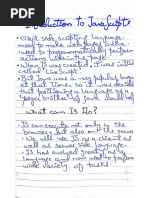 Introduction to JavaScript
• Client side scripting language
used to make web pages alive
used to programmatically perform
actions within the page.
• When it was created, it was initially
called "LiveScript".
• But Java was a very popular lang
at that time, so it was decided
that positioning a language as a
"younger brother" of Java
What can JS Do?
• JS can execute not only in the
browser, but also on the server
• We will use JS as a client as
well as server side language
• JS has evolved greatly as a
language and now used to perform
wide variety of tasks.